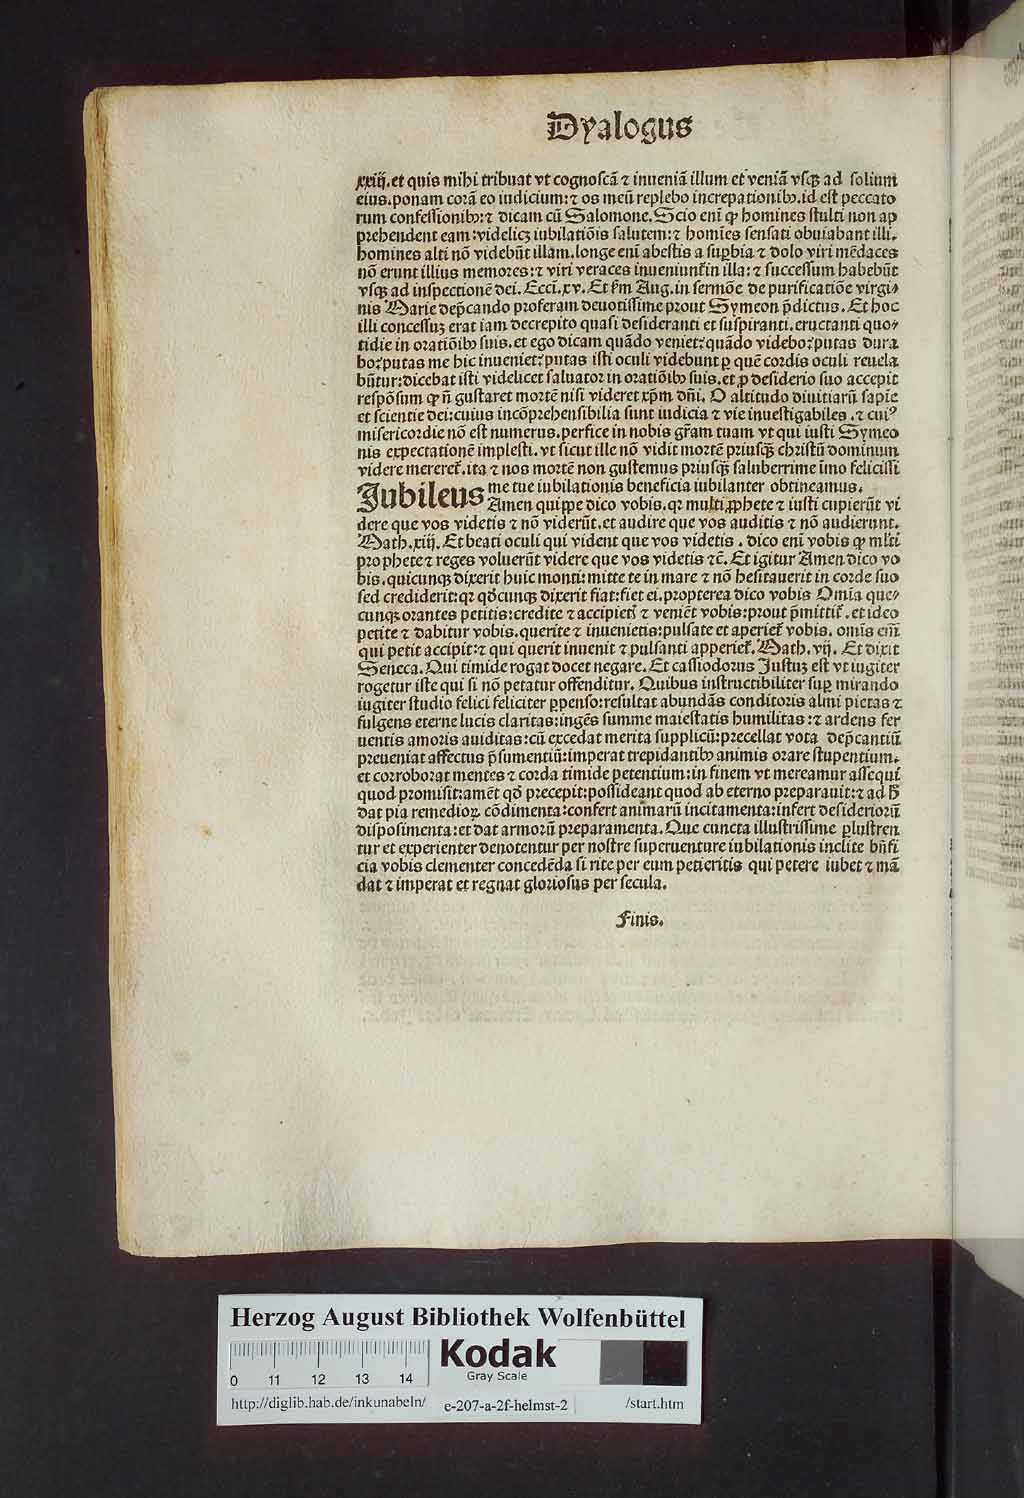 Dyalogus
xxiij. et quis mihi tribuat vt cognoscā ⁊ inueniā illum et veniā vsqꝫ ad solium
eius. ponam corā eo iudicium: ⁊ os meū replebo increpationibꝰ. id est peccato
rum confessionibꝰ: ⁊ dicam cū Salomone. Scio enī ꝙ homines stulti non ap
prehendent eam: videlicꝫ iubilatiōis salutem: ⁊ homīes sensati obuiabant illi.
homines alti nō videbūt illam. longe enī abestis a suꝑbia ⁊ dolo viri mēdaces
nō erunt illius memores: ⁊ viri veraces inueniunt̄ in illa: ⁊ successum habebūt
vsqꝫ ad inspectionē dei. Ecci. xv. Et ẜm Aug. in sermōe de purificatiōe virgi⸗
nis Marie dep̄cando proferam deuotissime prout Symeon p̄dictus. Et hoc
illi concessuꝫ erat iam decrepito quasi desideranti et suspiranti. eructanti quo⸗
tidie in oratiōibꝰ suis. et ego dicam quādo veniet: quādo videbo: putas dura
bo: putas me hic inueniet: putas isti oculi videbunt ꝑ quē cordis oculi reuela
būtur: dicebat isti videlicet saluator in oratiōibꝰ suis. et ꝓ desiderio suo accepit
respōsum ꝙ n̄ gustaret mortē nisi videret xp̄m dn̄i. O altitudo diuitiarū sapīe
et scientie dei: cuius incōprehensibilia sunt iudicia ⁊ vie inuestigabiles. ⁊ cuiꝰ
misericordie nō est numerus. perfice in nobis gr̄am tuam vt qui iusti Symeo
nis expectationē implesti. vt sicut ille nō vidit mortē priusqꝫ christū dominum
videre mereret̄. ita ⁊ nos mortē non gustemus priusqꝫ saluberrime īmo felicissi
me tue iubilationis beneficia iubilanter obtineamus.
Jubileus Amen quippe dico vobis. qꝛ multi ꝓphete ⁊ iusti cupierūt vi
dere que vos videtis ⁊ nō viderūt. et audire que vos auditis ⁊ nō audierunt.
Math. xiij. Et beati oculi qui vident que vos videtis. dico enī vobis ꝙ ml̄ti
prophete ⁊ reges voluerūt videre que vos videtis ⁊c̄. Et igitur Amen dico vo
bis. quicunqꝫ dixerit huic monti: mitte te in mare ⁊ nō hesitauerit in corde suo
sed crediderit: qꝛ qd̄cunqꝫ dixerit fiat: fiet ei. propterea dico vobis Omīa que⸗
cunqꝫ orantes petitis: credite ⁊ accipietꝭ ⁊ veniēt vobis: prout p̄mittit̄. et ideo
petite ⁊ dabitur vobis. querite ⁊ inuenietis: pulsate et aperiet̄ vobis. omīs em̄
qui petit accipit: ⁊ qui querit inuenit ⁊ pulsanti apperiet̄. Math. vij. Et dixit
Seneca. Qui timide rogat docet negare. Et cassiodorus Justuꝫ est vt iugiter
rogetur iste qui si nō petatur offenditur. Quibus instructibiliter suꝑ mirando
iugiter studio felici feliciter ꝑpenso: resultat abundās conditoris almi pietas ⁊
fulgens eterne lucis claritas: ingēs summe maiestatis humilitas: ⁊ ardens fer
uentis amoris auiditas: cū excedat merita supplicū: precellat vota dep̄cantiū
preueniat affectus p̄sumentiū: imperat trepidantibꝰ animis orare stupentium.
et corroborat mentes ⁊ corda timide petentium: in finem vt mereamur assequi
quod promisit: amēt qd̄ precepit: possideant quod ab eterno preparauit: ⁊ ad h̄
dat pia remedioꝝ cōdimenta: confert animarū incitamenta: infert desideriorū
disposimenta: et dat armorū preparamenta. Que cuncta illustrissime ꝑlustren
tur et experienter denotentur per nostre superuenture iubilationis inclite bn̄fi
cia vobis clementer concedēda si rite per eum petieritis qui petere iubet ⁊ mā
dat ⁊ imperat et regnat gloriosus per secula.
Finis.
Herzog August Bibliothek Wolfenbüttel
0 11 12 13 14
Kodak
Gray Scale
http://diglib.hab.de/inkunabeln/ e-207-a-2f-helmst-2 /start.htm